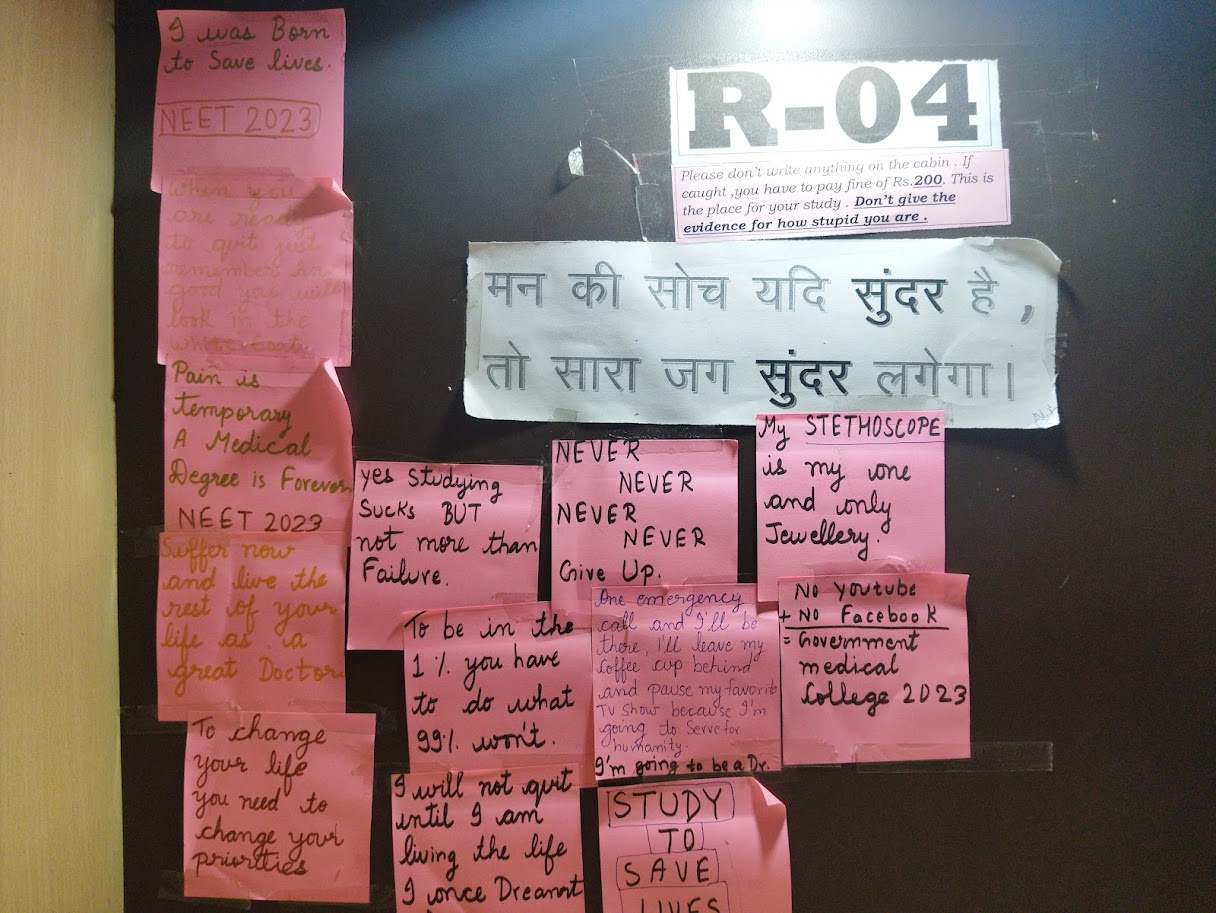 I was Born
to Save lives.
NEET 2023
When you
are ready
to quit just
remember how
good you will
look in the
Pain is
temporary
A Medical
Degree is Forever
NEET 2023
Suffer now
and live the
rest of your
life as a
great Doctor
To change
your life
you need to
change your
priorities
R-04
Please don't write anything on the cabin . If
caught ,you have to pay fine of Rs.200. This is
the place for your study . Don't give the
evidence for how stupid you are .
मन की सोच यदि सुंदर है ,
तो सारा जग सुंदर लगेगा।
yes studying
Sucks BUT
not more than
Failure.
NEVER
NEVER
NEVER
NEVER
Give Up.
My STETHOSCOPE
is my one
and only
Jewellery.
To be in the
1 % you have
to do what
99% won't.
One emergency
call and I'll be
there, I'll leave my
Coffee cup behind
and pause my favorit
TV show because I'm
going to Serve for
humanity.
I'm going to be a Dr.
No Youtube
+ No Facebook
= Government
medical
College 2023
I will not quit
until I am
living the life
I once Dreamt
STUDY
TO
SAVE
LIVES